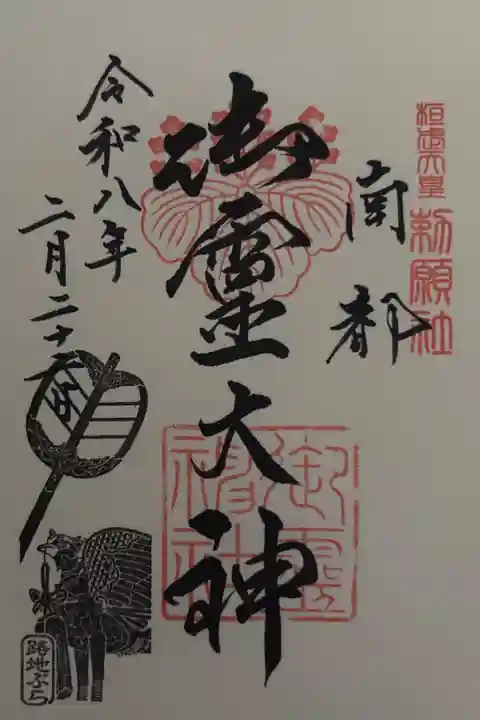 桓武天皇
勅願社
南都
御霊大神
御霊神社
令和八年
二月二十六日
路地ぶら